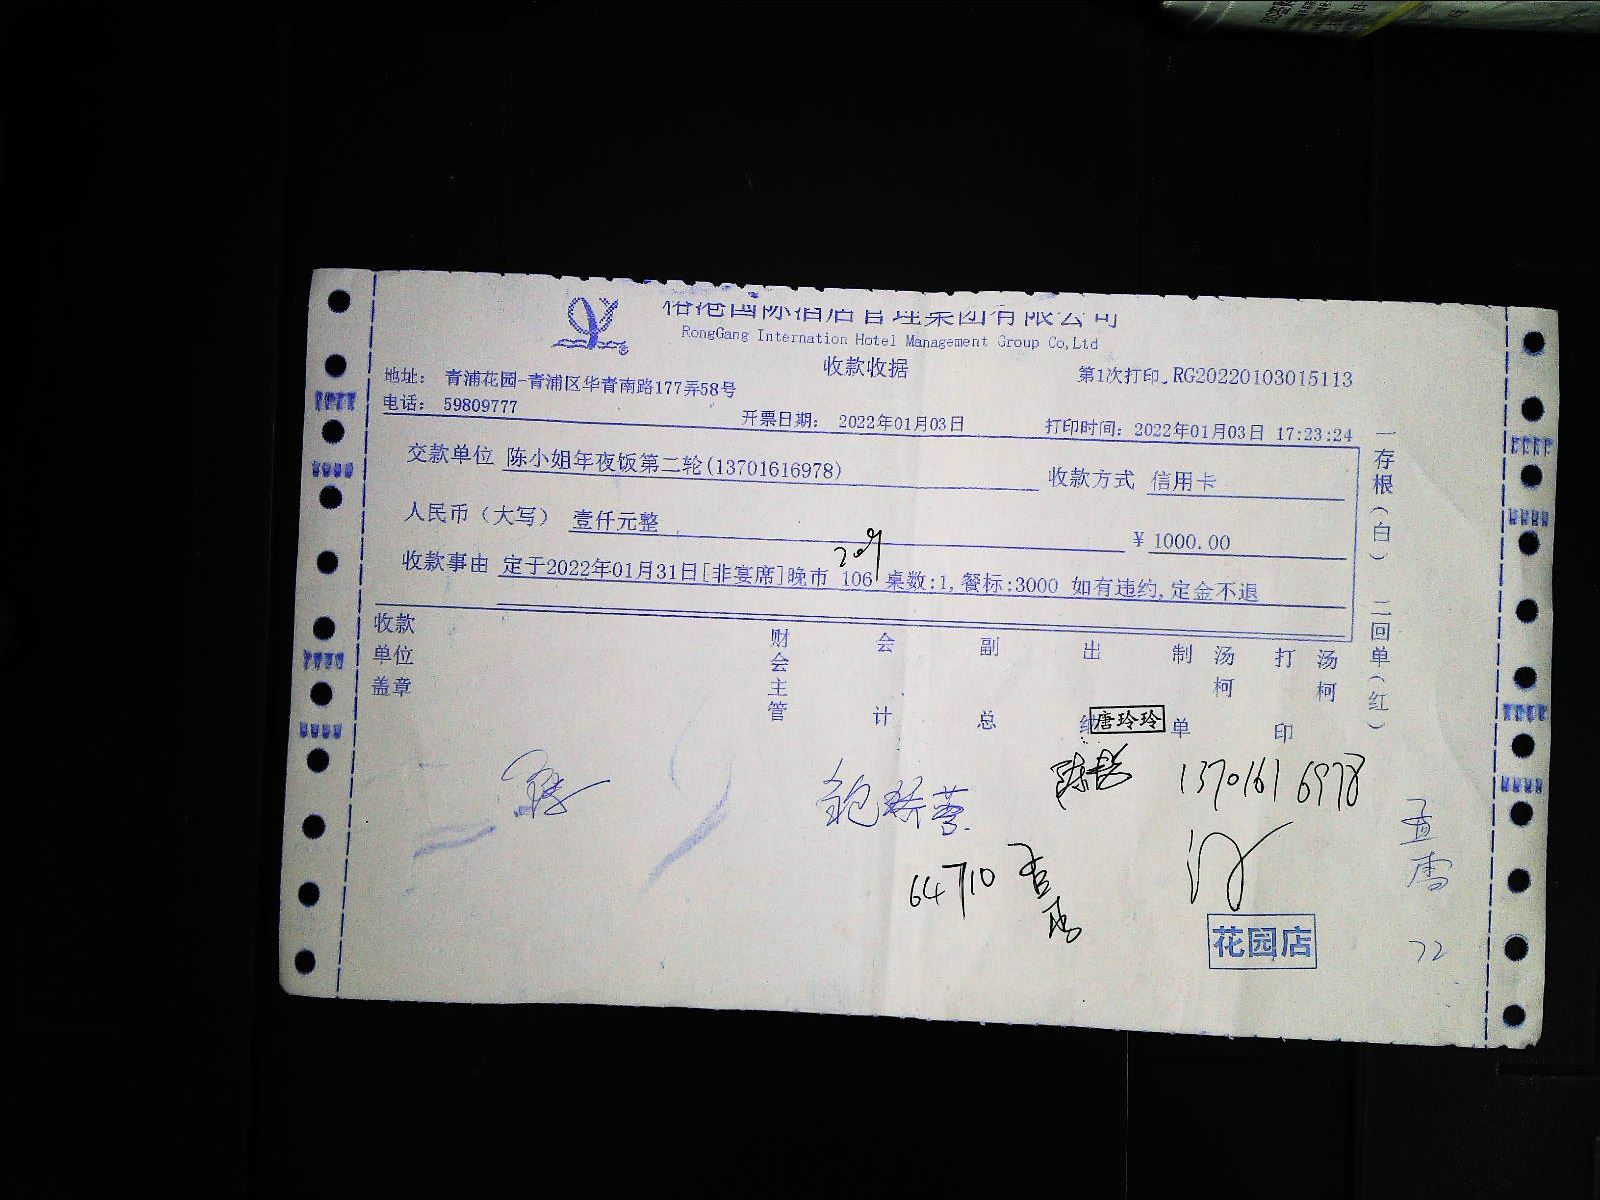 裕港国际酒店管理集团有限公司
RongGang Internation Hotel Management Group Co,Ltd
收款收据
地址： 青浦花园-青浦区华青南路177弄58号
第1次打印 RG20220103015113
电话： 59809777
开票日期： 2022年01月03日
打印时间：2022年01月03日 17:23:24
交款单位 陈小姐年夜饭第二轮(13701616978)
收款方式 信用卡
人民币（大写） 壹仟元整
￥ 1000.00
209
收款事由 定于2022年01月31日[非宴席]晚市 106 桌数:1,餐标:3000 如有违约,定金不退
一存根(白) 二回单(红)
收款单位盖章
财会主管
会计
副总
出纳
唐玲玲
制单
汤柯
打印
汤柯
13701616978
64710
花园店
72